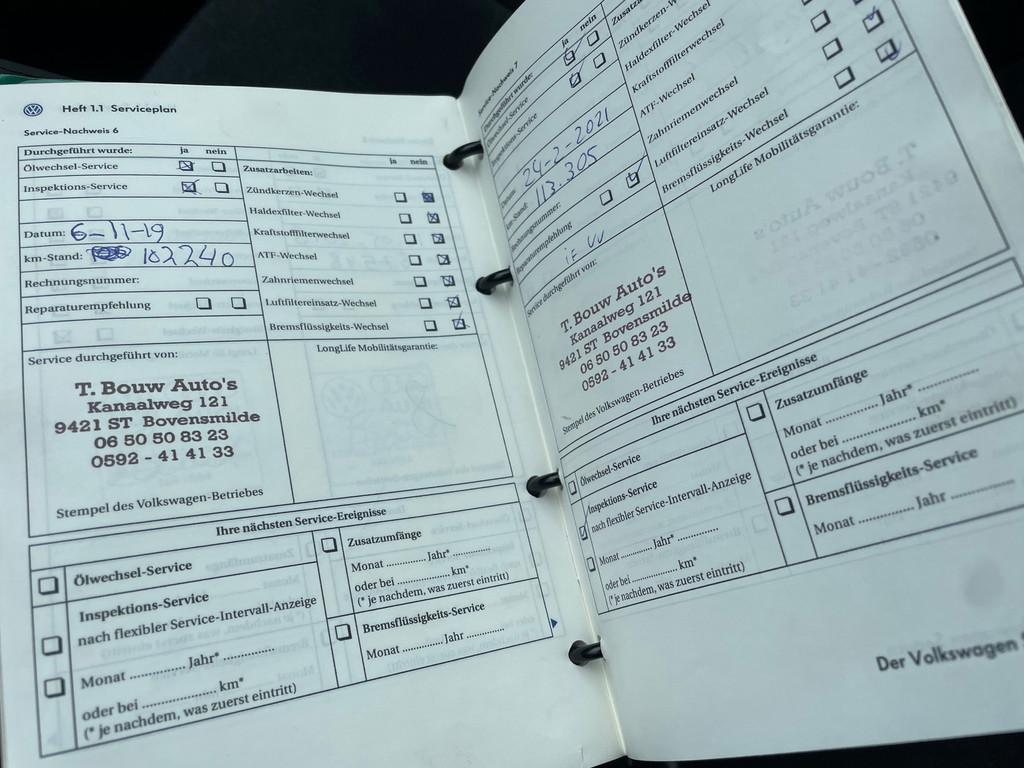 Heft 1.1 Serviceplan
Service-Nachweis 6
Durchgeführt wurde: ja nein
Ölwechsel-Service
Inspektions-Service
Datum: 6-11-19
km-Stand: 102240
Rechnungsnummer:
Reparaturempfehlung
Zusatzarbeiten: ja nein
Zündkerzen-Wechsel
Haldexfilter-Wechsel
Kraftstofffilterwechsel
ATF-Wechsel
Zahnriemenwechsel
Luftfiltereinsatz-Wechsel
Bremsflüssigkeits-Wechsel
Service durchgeführt von:
T. Bouw Auto's
Kanaalweg 121
9421 ST Bovensmilde
06 50 50 83 23
0592 - 41 41 33
Stempel des Volkswagen-Betriebes
LongLife Mobilitätsgarantie:
Ihre nächsten Service-Ereignisse
Ölwechsel-Service
Inspektions-Service
nach flexibler Service-Intervall-Anzeige
Monat ............... Jahr* ..............
oder bei .................... km*
(* je nachdem, was zuerst eintritt)
Zusatzumfänge
Monat .............. Jahr* .............
oder bei .................. km*
(* je nachdem, was zuerst eintritt)
Bremsflüssigkeits-Service
Monat .............. Jahr .............
Service-Nachweis 7
Durchgeführt wurde: ja nein
Ölwechsel-Service
Inspektions-Service
Datum: 24-2-2021
km-Stand: 113.305
Rechnungsnummer:
Reparaturempfehlung
Zündkerzen-Wechsel
Haldexfilter-Wechsel
Kraftstofffilterwechsel
ATF-Wechsel
Zahnriemenwechsel
Luftfiltereinsatz-Wechsel
Bremsflüssigkeits-Wechsel
Service durchgeführt von:
T. Bouw Auto's
Kanaalweg 121
9421 ST Bovensmilde
06 50 50 83 23
0592 - 41 41 33
Stempel des Volkswagen-Betriebes
LongLife Mobilitätsgarantie:
Ihre nächsten Service-Ereignisse
Ölwechsel-Service
Inspektions-Service
nach flexibler Service-Intervall-Anzeige
Monat .............. Jahr* ..............
oder bei .................. km*
(* je nachdem, was zuerst eintritt)
Zusatzumfänge
Monat .............. Jahr* ................
oder bei ...................... km*
(* je nachdem, was zuerst eintritt)
Bremsflüssigkeits-Service
Monat .............. Jahr ................
Der Volkswagen